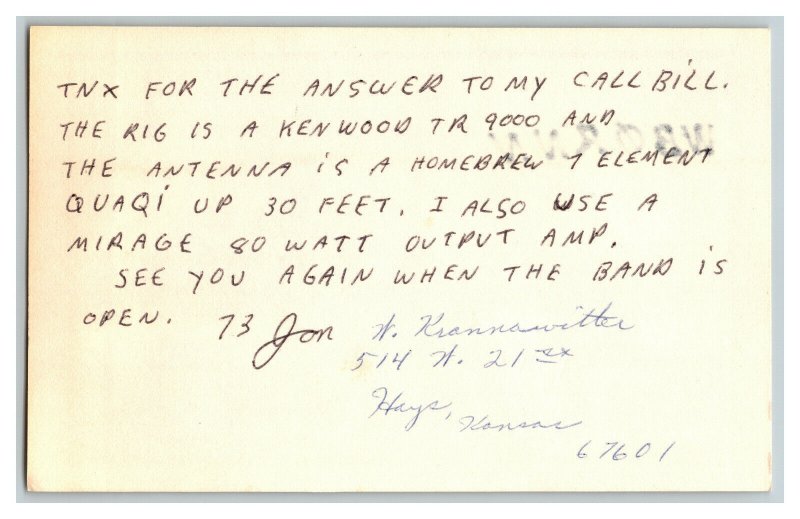 TNX FOR THE ANSWER TO MY CALL BILL.
THE RIG IS A KENWOOD TR 9000 AND
THE ANTENNA iS A HOMEBREW 7 ELEMENT
QUAQi UP 30 FEET. I ALSO USE A
MIRAGE 80 WATT OUTPUT AMP.
SEE YOU AGAIN WHEN THE BAND iS
OPEN. 73 Jon N. Krannawitter
514 W. 21st
Hays,
Kansas
67601